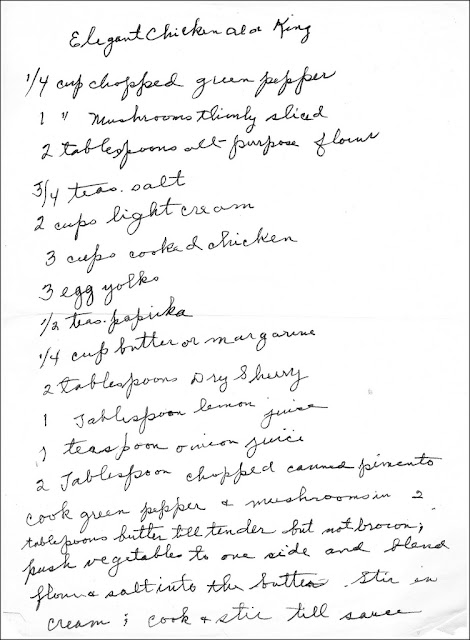 Elegant Chicken a la King
1/4 cup chopped green pepper
1 " Mushrooms thinly sliced
2 tablespoons all-purpose flour
3/4 teas. salt
2 cups light cream
3 cups cooked chicken
3 egg yolks
1/2 teas. paprika
1/4 cup butter or margarine
2 tablespoons Dry Sherry
1 Tablespoon lemon juice
1 teaspoon onion juice
2 Tablespoon chopped canned pimento
cook green pepper & mushrooms in 2
tablespoons butter till tender but not brown;
push vegetables to one side and blend
flour & salt into the butter. Stir in
cream; cook & stir till sauce